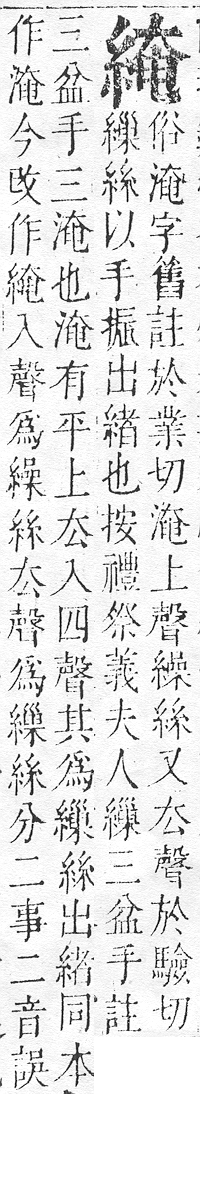 ⿰糹奄
俗淹字舊註於業切淹上聲繰絲又厺聲於驗切
繅絲以手振出緒也按禮祭義夫人繅三盆手註
三盆手三淹也淹有平上厺入四聲其爲繅絲出緒同本
作淹今改作⿰糹奄入聲爲繰絲厺聲爲繅絲分二事二音誤